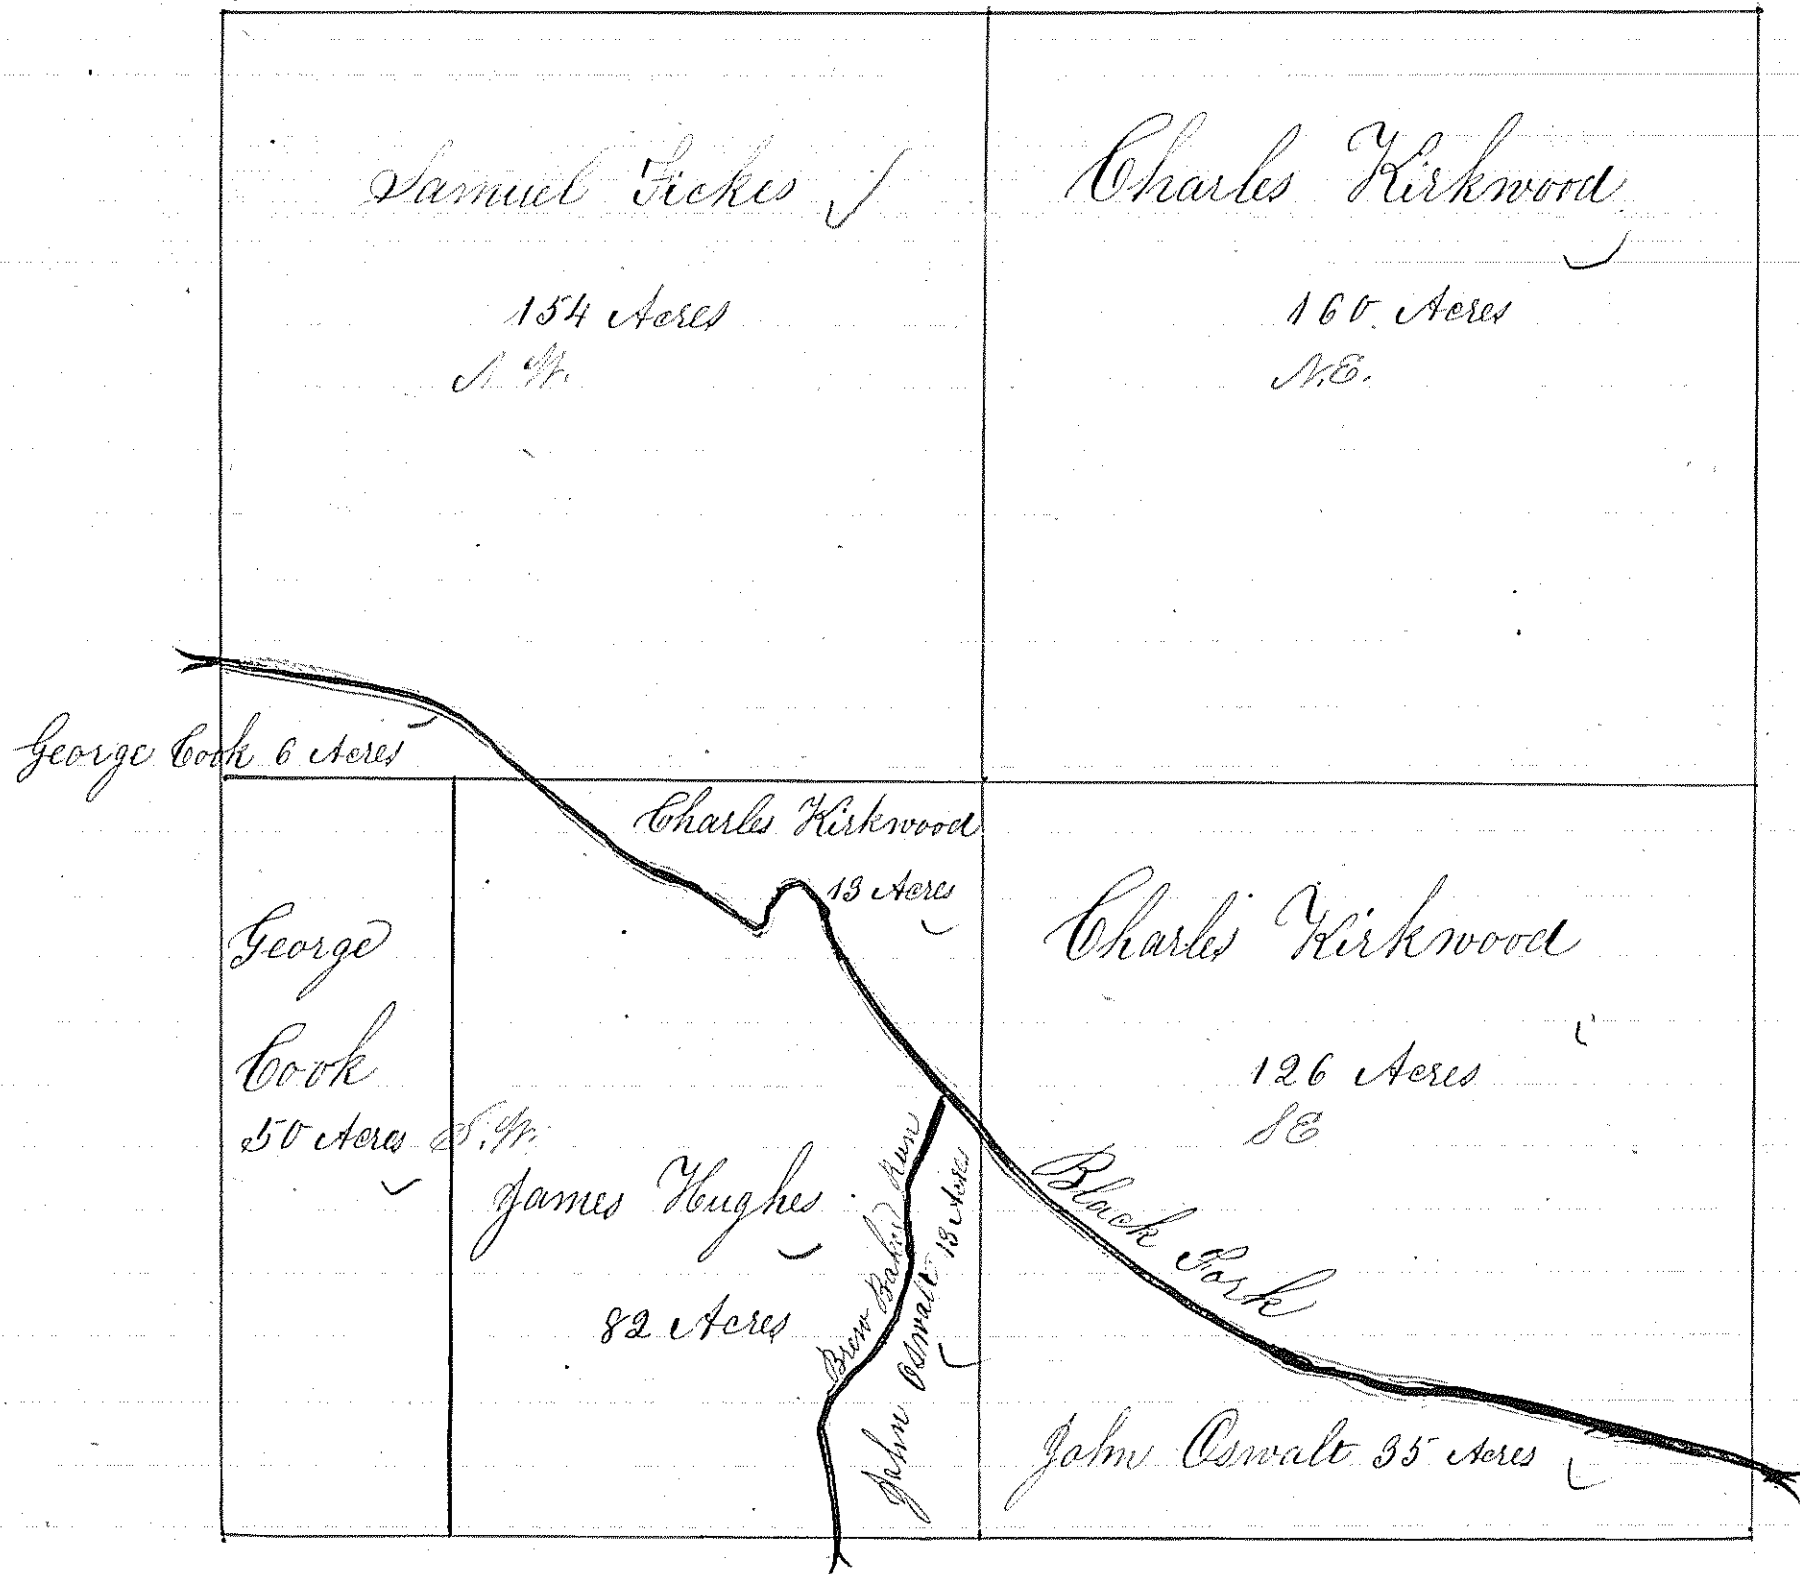 Samuel Fickes
154 Acres
N.W.
Charles Kirkwood
160 Acres
N.E.
George Cook 6 Acres
Charles Kirkwood
13 Acres
George
Cook
50 Acres
S.W.
James Hughes
82 Acres
Run
John Oswalt 13 Acres
Charles Kirkwood
126 Acres
SE
Black Fork
John Oswalt 35 Acres